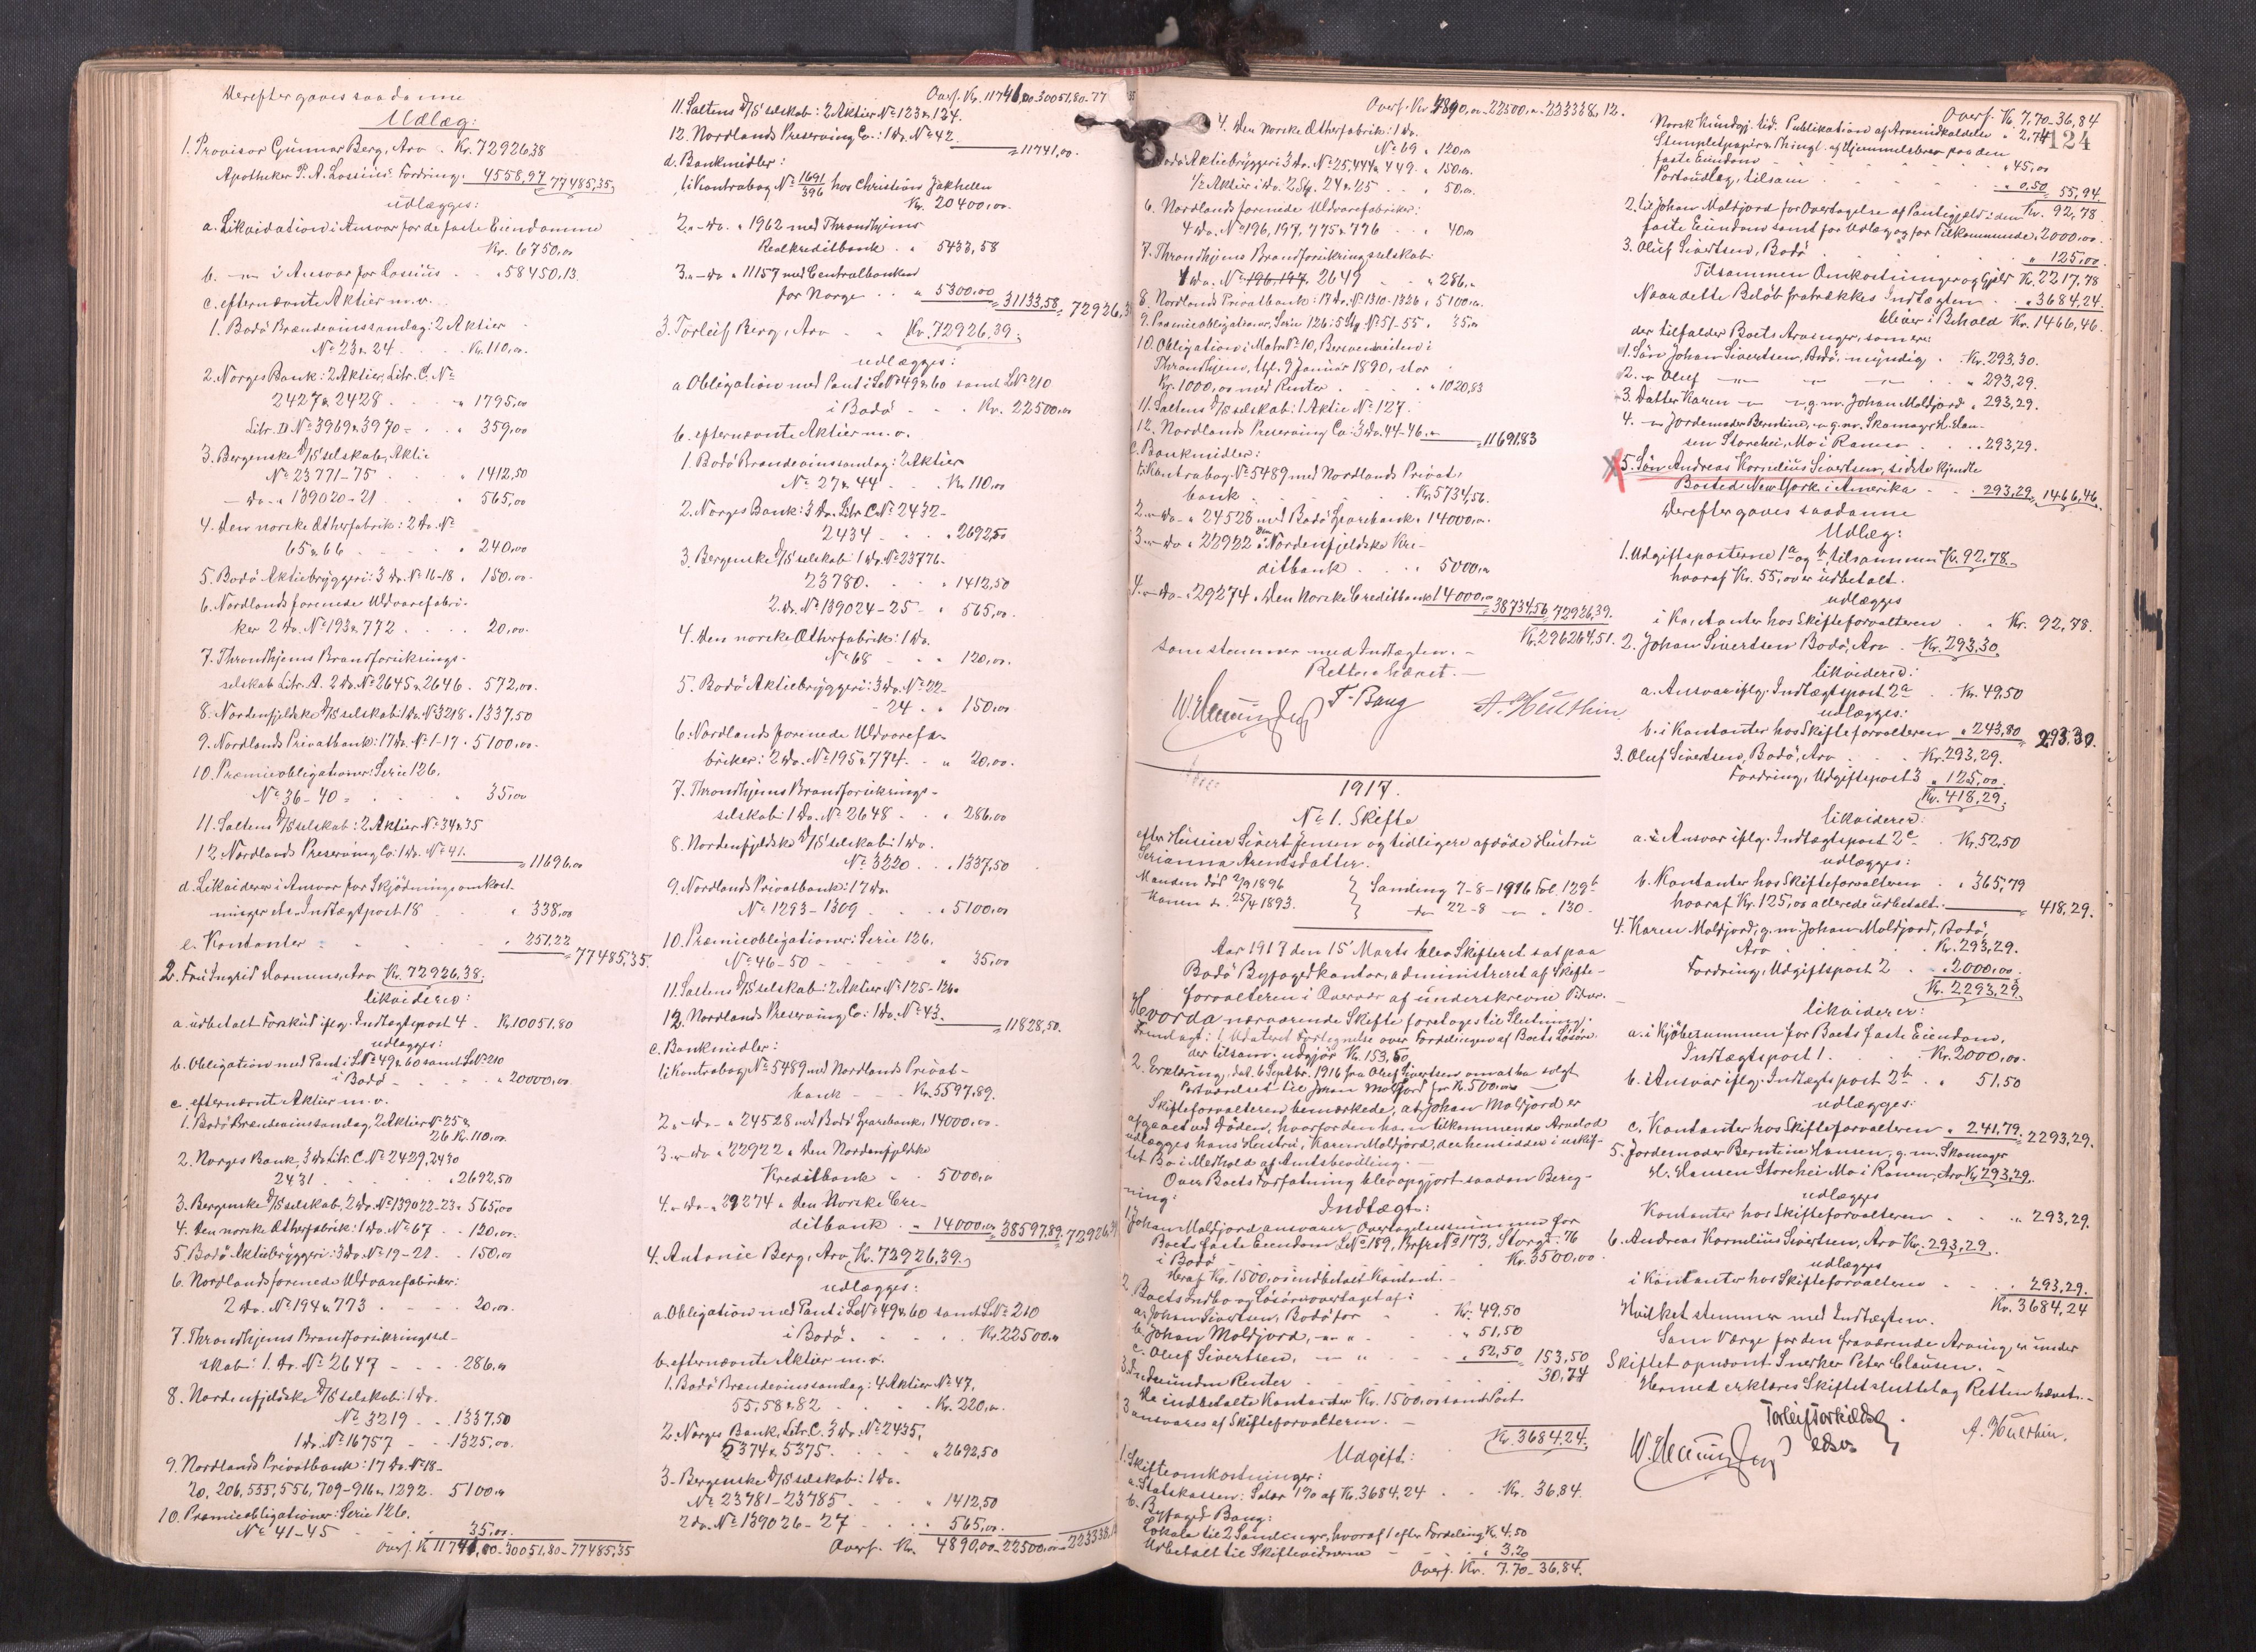 Derefter gaves saadanne
Udlæg:
1. Provisor Gunnar Berg, Arv . Kr. 72926,38
Apotheker P. A. Lossius' Fordring. 4558,97 77485,35.
udlægges:
a. Likvidation i Ansvar for de faste Eiendomme
Kr. 6750,00
b. -"- i Ansvar for Lossius . . " 58450,13
c. efternævnte Aktier m.v.
1. Bodö Brændevinssamlag: 2 Aktier
No 23 & 24 . . . Kr. 110,00.
2. Norges Bank: 2 Aktier, Litr. C. No
2427 & 2428 . . . " 1795,00
Litr. D No 3969 & 3970 = . . " 359,00
3. Bergenske D/S selskab, Aktie
No 23771-75 . . " 1412,50
- do - " 139020-21 . . " 565,00
4. Den norske Ætherfabrik: 2 do. No
65 & 66 . . . " 240,00
5. Bodö Aktiebryggeri: 3 do. No 16-18 . 150,00.
6. Nordlands forenede Uldvarefabri-
ker 2 do. No 193 & 772 . . . . 20,00.
7. Throndhjems Brandforsikrings-
selskab Litr. A. 2 do. No 2645 & 2646 . 572,00.
8. Nordenfjeldske D/S selskab: 1 do. No 3218 " 1337,50
9. Nordlands Privatbank: 17 do. No 1-17 . 5100,00.
10. Præmieobligationer: Serie 126.
No 36-40 = . . . " 35,00
11. Saltens D/S selskab: 2 Aktier No 34 & 35
12. Nordlands Preserving Co: 1 do. No 41. = 11696,00
d. Likviderer i Ansvar for Skjödningsomkost-
ninger etc. Indtægtpost 18 . . . " 338,00
e. Kontanter . . . . " 251,22
= 77485,35.
2. Fru Ingrid Harmens, Arv Kr. 72926,38.
likviderer:
a. udbetalt Forskud iflg. Indtægtspost 4 . Kr. 10051,80
udlægges:
b. Obligation med Pant i L.No 49 & 60 samt L.No 210
i Bodö - . . . . " 20000,00.
c. efternævnte Aktier m.v.
1. Bodö Brændevinssamlag, 2 Aktier No 25 &
26 Kr. 110,00.
2. Norges Bank, 3 do. Litr. C. No 2429, 2430
2431 . . . . . " 2692,50
3. Bergenske D/S selskab, 2 do. No 139022-23 " 565,00
4. Den norske Ætherfabrik: 1 do. No 67 . . 120,00.
5. Bodö Aktiebryggeri: 3 do. No 19-21 . . 150,00
6. Nordlands forenede Uldvarefabriker:
2 do. No 194 & 773 . . . . 20,00.
7. Throndhjems Brandforsikringssel-
skab: 1. do. No 2647 - - . . 286,00
8. Nordenfjeldske D/S selskab: 1 do.
No 3219 . . . 1337,50
1 do. No 16757 - . . 1325,00.
9. Nordlands Privatbank: 17 do. No 18-
20, 206, 555, 556, 709-916 & 1292. 5100,00
10. Præmieobligationer: Serie 126.
No 41-45 . . . 35,00.
Overf. Kr. 11741,00 - 30051,80 - 77485,35
Overf. Kr. 11741,00-30051,80-77
11. Saltens D/S selskab: 2 Aktier No 123 & 124.
12. Nordlands Preserving Co.: 1 do. No 42. = 11741,00.
d. Bankmidler:
1. i Kontrabog No 1691/396 hos Christian Jakhelln
Kr. 20400,00.
2. " - do. " 1962 med Throndhjems
Realkreditbank . . " 5433,58
3. " - do " 11157 med Centralbanken
for Norge . . " 5300,00 = 31133,58 = 72926,3
3. Torleif Berg, Arv - . Kr. 72926,39.
udlægges:
a. Obligation med Pant i L.No 49 & 60 samt L.No 210
i Bodö - - . Kr. 22500,00
b. efternævnte Aktier m.v.
1. Bodö Brændevinssamlag: 2 Aktier
No 27 & 44 . . Kr. 110,00
2. Norges Bank: 3 do. Litr. C No 2432-
2434 - . . " 2692,50
3. Bergenske D/S selskab: 1 do. No 23776-
23780. . . . " 1412,50
2. do. No 139024-25 . " 565,00.
4. Den norske Ætherfabrik: 1 do.
No 68 - . " 120,00.
5. Bodö Aktiebryggeri: 3 do. No 22-
- 24 . " 150,00
6. Nordlands forenede Uldvarefa-
briker: 2 do. No 195 & 774. - " 20,00.
7. Throndhjems Brandforsikrings-
selskab: 1 do. No 2648 . . " 286,00
8. Nordenfjeldske D/S selskab: 1 do.
No 3220 . . . 1337,50
9. Nordlands Privatbank: 17 do.
No 1293-1309 . . . 5100,00
10. Præmieobligationer: Serie 126.
No 46-50 - . . " 35,00
11. Saltens D/S selskab: 2 Aktier No 125-126
12. Nordlands Preserving Co: 1 do. No 43. = 11828,50.
c. Bankmidler:
1. i Kontrabog No 5489 med Nordlands Privat-
bank - - . Kr. 5597,89.
2. " - do - " 24528 med Bodö Sparebank, 14000,00 -
3. " do " 22922 " den Nordenfjeldske
Kreditbank - " 5000,00
4. " - do - " 29274 " den Norske Cre-
ditbank . . " 14000,00 = 38597,89. = 72926,39
4. Antonie Berg, Arv Kr. 72926,39.
udlægges:
a. Obligation med Pant i L.No 49 & 60 samt L.No 210
i Bodö. . . . . Kr. 22500,00
b. efternævnte Aktier m.v.
1. Bodö Brændevinssamlag: 4 Aktier No 47,
55, 58 & 82 . . . . Kr. 220,00.
2. Norges Bank, Litr. C. 3 do. No 2435,
5374 & 5375. . . . " 2692,50
3. Bergenske D/S selskab: 1 do.
No 23781-23785. . . " 1412,50
2 do. No 139026-27 . . " 565,00.
Overf. Kr. 4890,00-22500,00-223338,12
Overf. Kr. 4890,00-22500,00-223338,12.
4. Den Norske Ætherfabrik: 1 do.
No 69 " 120,00
Bodö Aktiebryggeri: 3 do. No 25, 444 & 449. " 150,00.
1/2 Aktier i do. 2 Stk. 24 & 25 . . " 50,00.
6. Nordlands forenede Uldvarefabriker:
4 do. No 196, 197, 775 & 776 . . " 40,00
7. Throndhjems Brandforsikringsselskab:
1 do. No 196, 197, 2649 - . " 286,"
8. Nordlands Privatbank: 17 do. No 1310-1326 " 5100,00.
9. Præmieobligationer, Serie 126: 5 Stk No 51-55 . 35,00
10. Obligation i Matr. No 10, Bersvenveiten i
Throndhjem, thl. 9 Januar 1890, stor
Kr. 1000,00 med Renter . . . " 1020,83
11. Saltens D/S selskab: 1 Aktie No 127.
12. Nordlands Preserving Co: 3 do. 44-46 = 11691,83
c. Bankmidler:
1. i Kontrabog No 5489 med Nordlands Privat-
bank . . . . Kr. 5734,56.
2. " - do - " 24528 med Bodö Sparebank " 14000,00.
3. " - do " 22922 " Den Nordenfjeldske Kre-
ditbank . . . " 5000,00
4. " - do - " 29274 " Den Norske Creditbank 14000,00 = 38734,56 = 72926,39.
Kr. 296264,51.
som stemmer med Indtægten. -
Retten hævet. -
F. Bang
A. Hülthin.
1917.
No 1. Skifte
efter Huseier Sivert Jensen og tidligere afdöde Hustru
Serianna Arentsdatter.
Manden död 2/9 1896 } Samling 7-8-1916 Fol. 129b
Konen d. 25/4 1893. } do 22-8 " " 130 -
Aar 1917 den 15' Marts blev Skifteret sat paa
Bodö Byfogedkontor, administreret af Skifte-
forvalteren i Overvær af underskrevne Vidner.
Hvorda nærværende Skifte foretoges til Slutning.
Fremlagt: 1. Udateret Fortegnelse over Fordelingen af Boets Lösöre
der tilsam. udgjör Kr. 153,50
2. Erklæring, dat. 6 Septbr. 1916 fra Oluf Sivertsen om at ha solgt
Portværelset til Johan Moldjord for Kr. 500,00
Skifteforvalteren bemærkede, at Johan Moldjord er
afgaaet ved Döden, hvorfor den ham tilkommende Arvelod
udlægges hans Hustru, Karen Moldjord, der hensidder i uskif-
tet Bo i Medhold af Amtsbevilling. -
Over Boets Forfatning blev opgjort saadan Bereg-
ning:
Indtægt:
1. Johan Moldjord ansvarer Overtagelsessummen for
Boets faste Eiendom L.No 159, Brfr. No 173, Storgt. 76
i Bodö . . . Kr. 3500,00
Heraf Kr. 1500,00 indbetalt Kontant. -
2. Boets Indbo og Lösöre overtaget af:
a. Johan Sivertsen, Bodö for . Kr. 49,50
b. Johan Moldjord, -"- " . . " 51,50
c. Oluf Sivertsen, -"- " . . " 52,50 = 153,50
3. Indvundne Renter . . . . 30,74
De indbetalte Kontanter Kr. 1500,00 samt Post
3 ansvares af Skifteforvalteren. -
Kr. 3684,24.
Udgift:
1. Skifteomkostninger:
a. Statskassen: Salær 1% af Kr. 3684,24 . . Kr. 36,84.
b. Byfoged Bang:
Lokale til 2 Samlinger, hvoraf 1 efter Fordeling Kr. 4.50
Udbetalt til Skiftevidnerne - - . " 3,20
Overf. Kr. 7,70 - 36,84.
Overf. Kr. 7,70-36,84
124
Norsk Kundgj. tid. Publikation af Arveindkaldelse " 2,74
Stempletpapir & Thingl. af Hjemmelsbrev paa den
faste Eiendom - . . . . " 45,00
Portoudlæg, tilsam . . . . " 0,50 = 55,94.
Kr. 92,78.
2. til Johan Moldjord for Overtagelse af Pantegjæld i den
faste Eiendom samt for Udlæg og for Tilkommende, 2000,00.
3. Oluf Sivertsen, Bodö . . . . " 125,00.
Tilsammen Omkostninger og Gjæld Kr. 2217,78
Naar dette Belöb fratrækkes Indtægten . . " 3684,24.
bliver i Behold Kr. 1466,46.
der tilfalder Boets Arvinger, som er:
1. Sön Johan Sivertsen, Bodö, myndig . Kr. 293,30.
2. " Oluf -"- -"- -"- . " 293,29.
3. Datter Karen -"- " g. m. Johan Moldjord . 293,29.
4. " Jordemoder Berntine, " g. m. Skomager H. Han-
sen Storehei, Mo i Ranen . . . 293,29.
X 5. Sön Andreas Kornelius Sivertsen, sidste kjendte
Bosted New York i Amerika - . . 293,29 = 1466,46.
Derefter gaves saadanne
Udlæg:
1. Udgiftsposterne 1a og b, tilsammen Kr. 92,78.
hvoraf Kr. 55,00 er udbetalt.
udlægges
i Kontanter hos Skifteforvalteren . . Kr. 92,78.
2. Johan Sivertsen Bodö, Arv . Kr. 293,30
likviderer:
a. Ansvar iflg. Indtægtspost 2a . Kr. 49,50
udlægges:
b. i Kontanter hos Skifteforvalteren " 243,80 = 293,30.
3. Oluf Sivertsen, Bodö, Arv . . Kr. 293,29.
Fordring, Udgiftspost 3 " 125,00.
Kr. 418,29.
likviderer:
a. i Ansvar iflg. Indtægtspost 2c . Kr. 52,50
udlægges:
b. Kontanter hos Skifteforvalteren . " 365,79
hvoraf Kr. 125,00 allerede udbetalt. = 418,29.
4. Karen Moldjord, g. m. Johan Moldjord, Bodö,
Arv . . . . Kr. 293,29.
Fordring, Udgiftspost 2 . . " 2000,00.
Kr. 2293,29.
likviderer:
a. i Kjöbesummen for Boets faste Eiendom,
Indtægtspost 1. . . . Kr. 2000,00.
b. i Ansvar iflg. Indtægtspost 2b . . " 51,50
udlægges:
c. Kontanter hos Skifteforvalteren " 241,79 = 2293,29.
5. Jordemoder Berntine Hansen, g. m. Skomager
H. Hansen Storehei Mo i Ranen, Arv Kr. 293,29.
udlægges
Kontanter hos Skifteforvalteren . . . " 293,29.
6. Andreas Kornelius Sivertsen, Arv Kr. 293,29.
udlægges
i Kontanter hos Skifteforvalteren . . . 293,29.
Kr. 3684,24
Hvilket stemmer med Indtægten.
Som Værge for den fraværende Arving er under
Skiftet opnævnt Snekker Peter Clausen. -
Hermed erklæres Skiftet sluttet og Retten hævet. -
A. Hülthin.